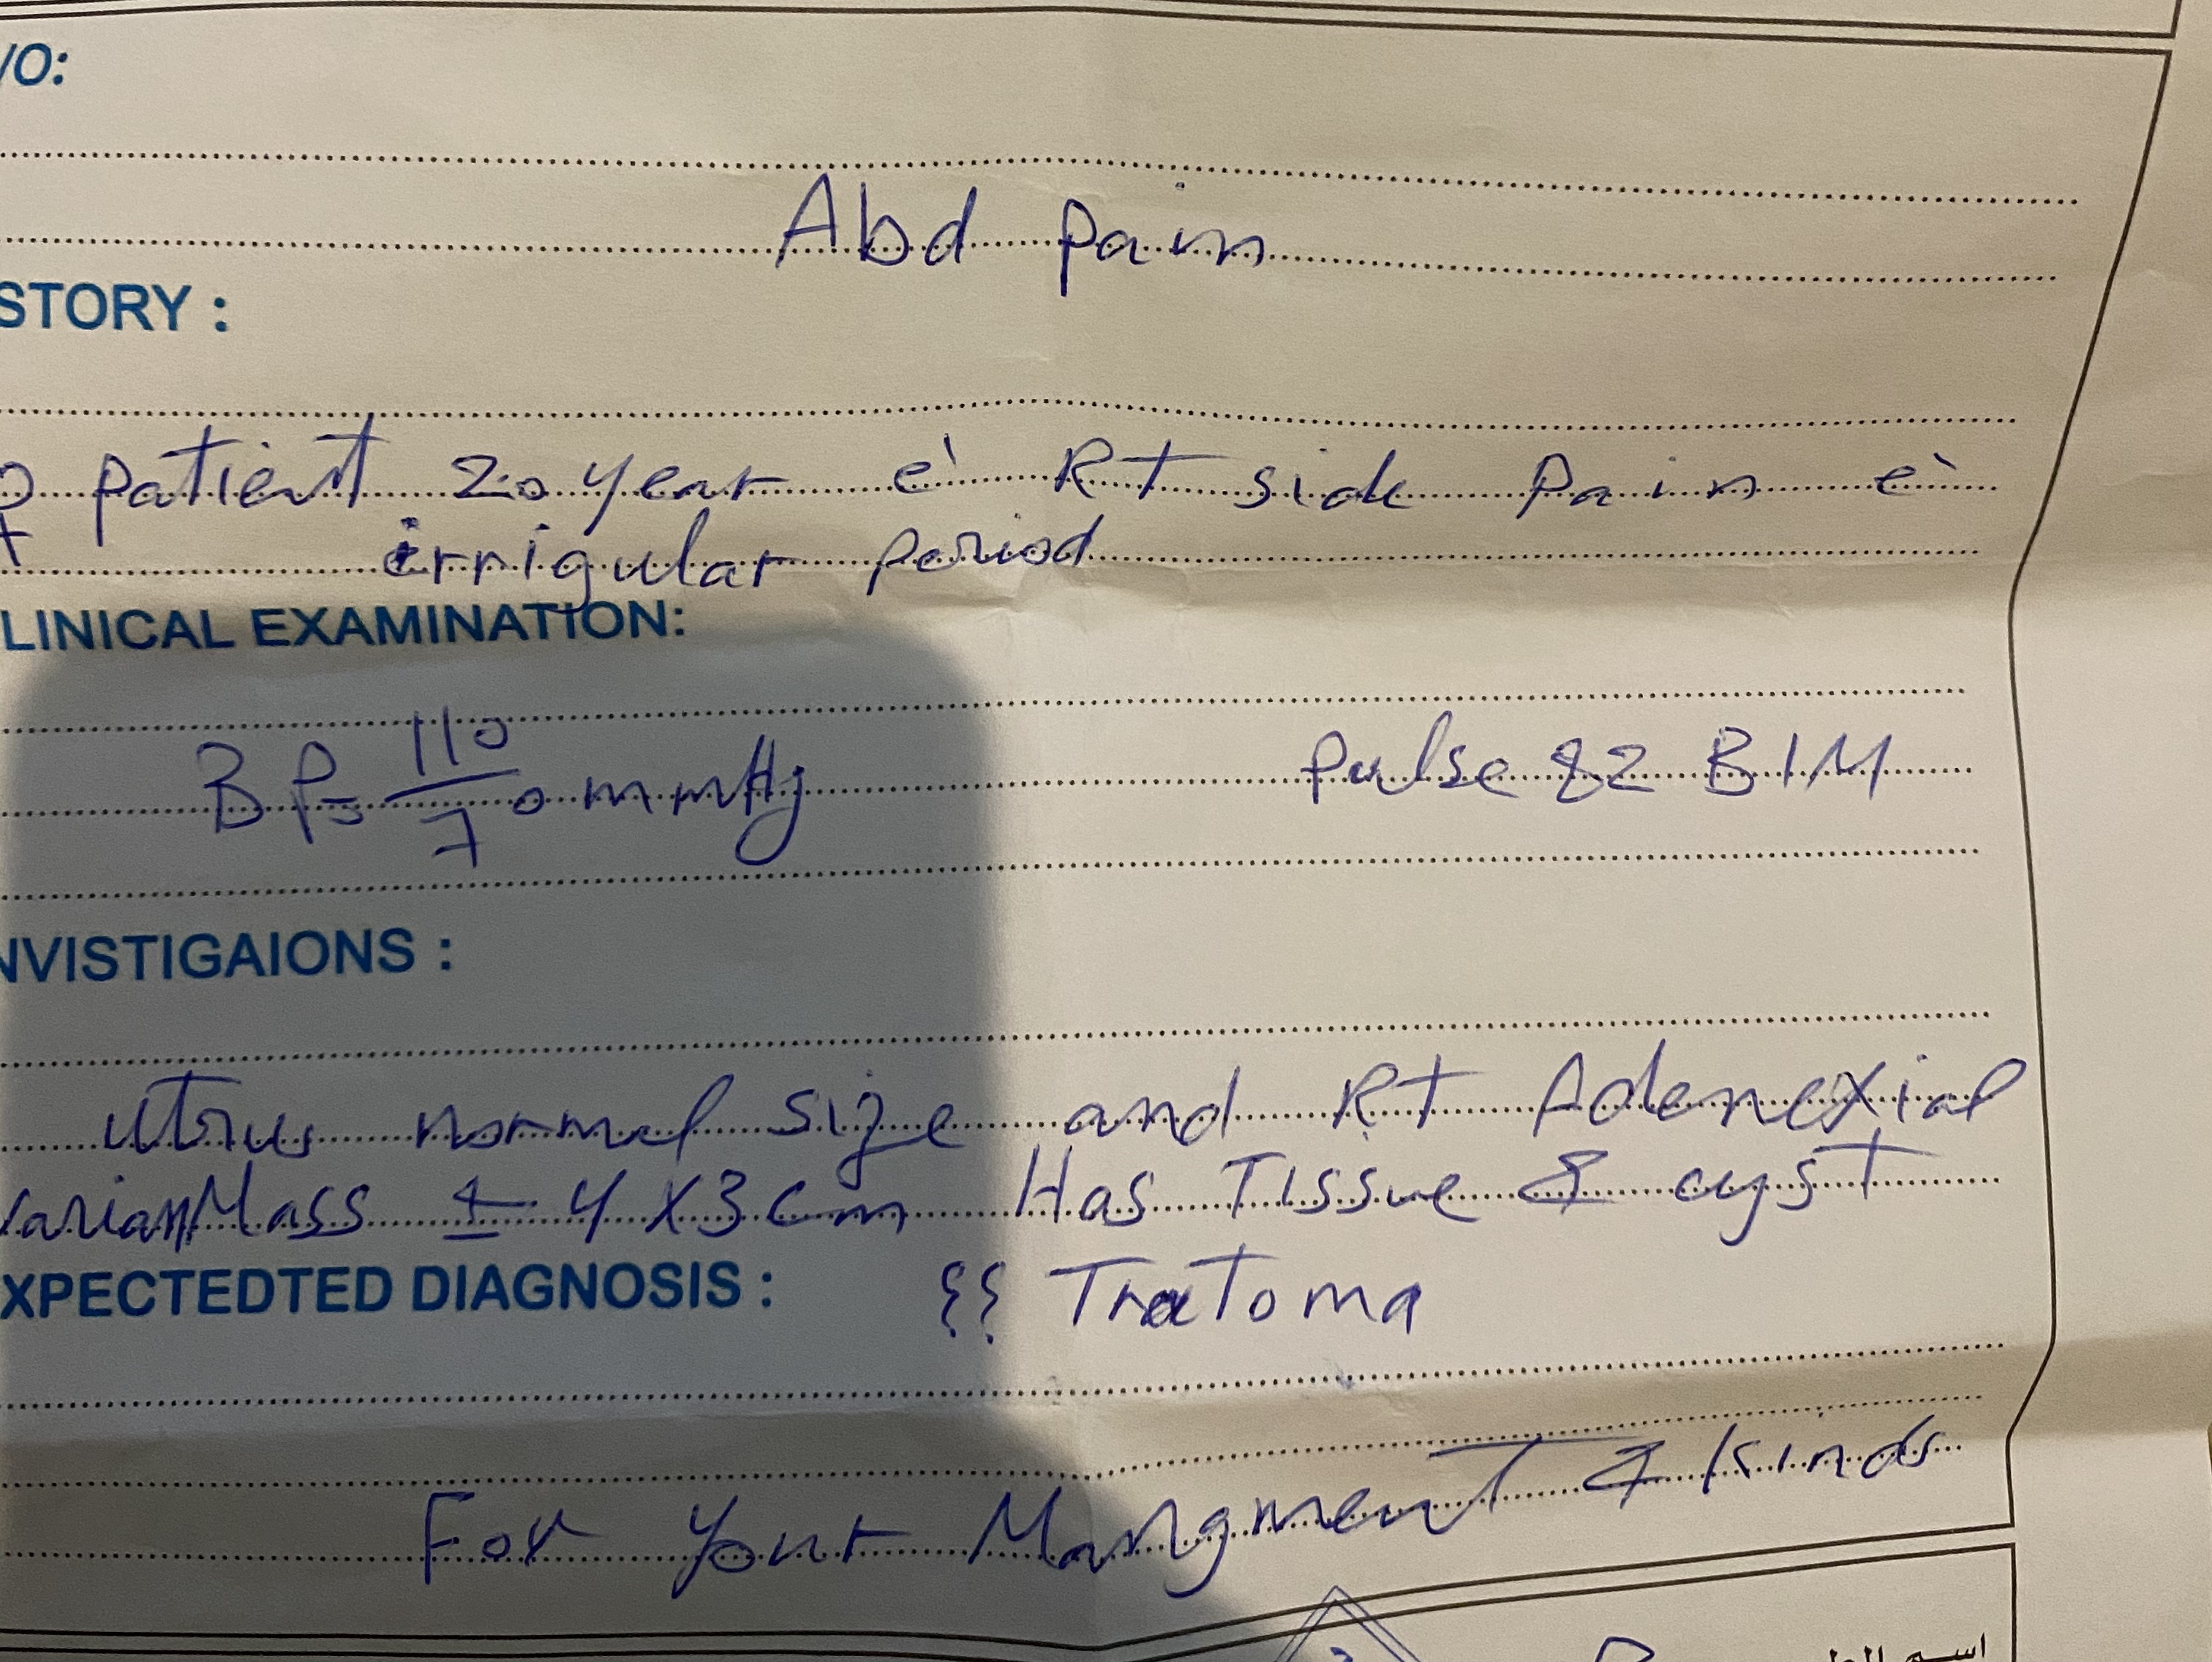 /O:
Abd pain
STORY :
♀ patient 20 year c̀ Rt side Pain c̀
irrigular period
LINICAL EXAMINATION:
BP= 110/70 mmHg pulse 82 B/M
NVISTIGAIONS :
utrus normal size and Rt Adenexial
varian Mass ± 4 x 3 cm Has Tissue & cyst
XPECTEDTED DIAGNOSIS : ؟؟ Tratoma
For your Mangment & kinds
اسم